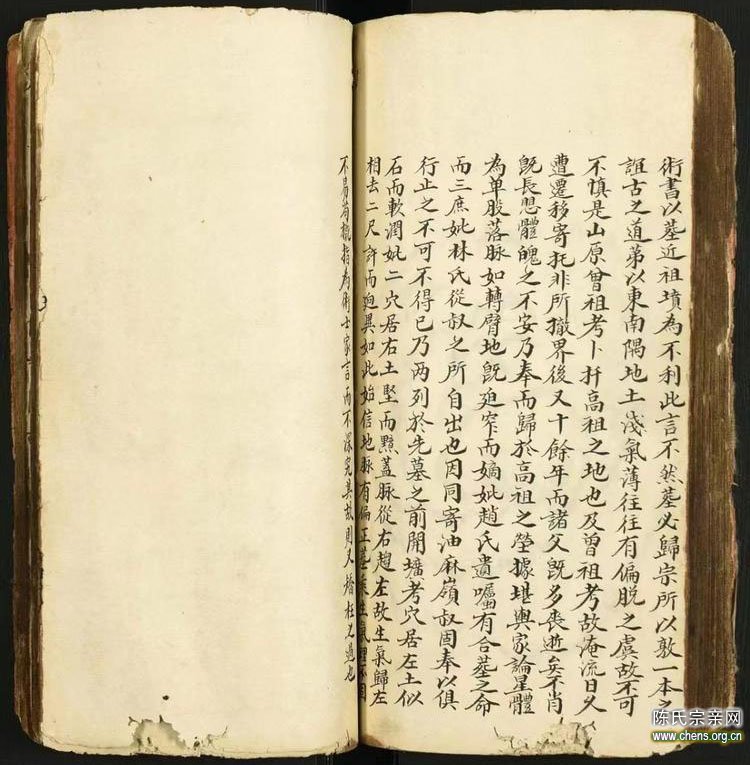 術書以墓近祖墳為不利此言不然墓必歸宗所以敦一本之
誼古之道第以東南隅地土淺氣薄往往有偏脫之虞故不可
不慎是山原曾祖考卜扞高祖之地也及曾祖考故淹流日久
遭遷移寄托非所撤界後又十餘年而諸父旣多喪逝矣不肖
旣長思體魄之不安乃奉而歸於高祖之塋據堪輿家論星體
為单股落脉如轉臂地旣迫窄而嫡妣趙氏遺囑有合墓之命
而三庶妣林氏從叔之所自出也因同寄油麻嶺叔固奉以俱
行止之不可不得已乃两列於先墓之前開壙考穴居左土似
石而軟潤妣二穴居右土堅而黯蓋脉從右趨左故生氣歸左
相去二尺許而逈異如此始信地脉有偏正墓乘生氣理不
不易苟概指為術士家言而不深究其故則又矯枉之過也
陈氏宗亲网
www.chens.org.cn